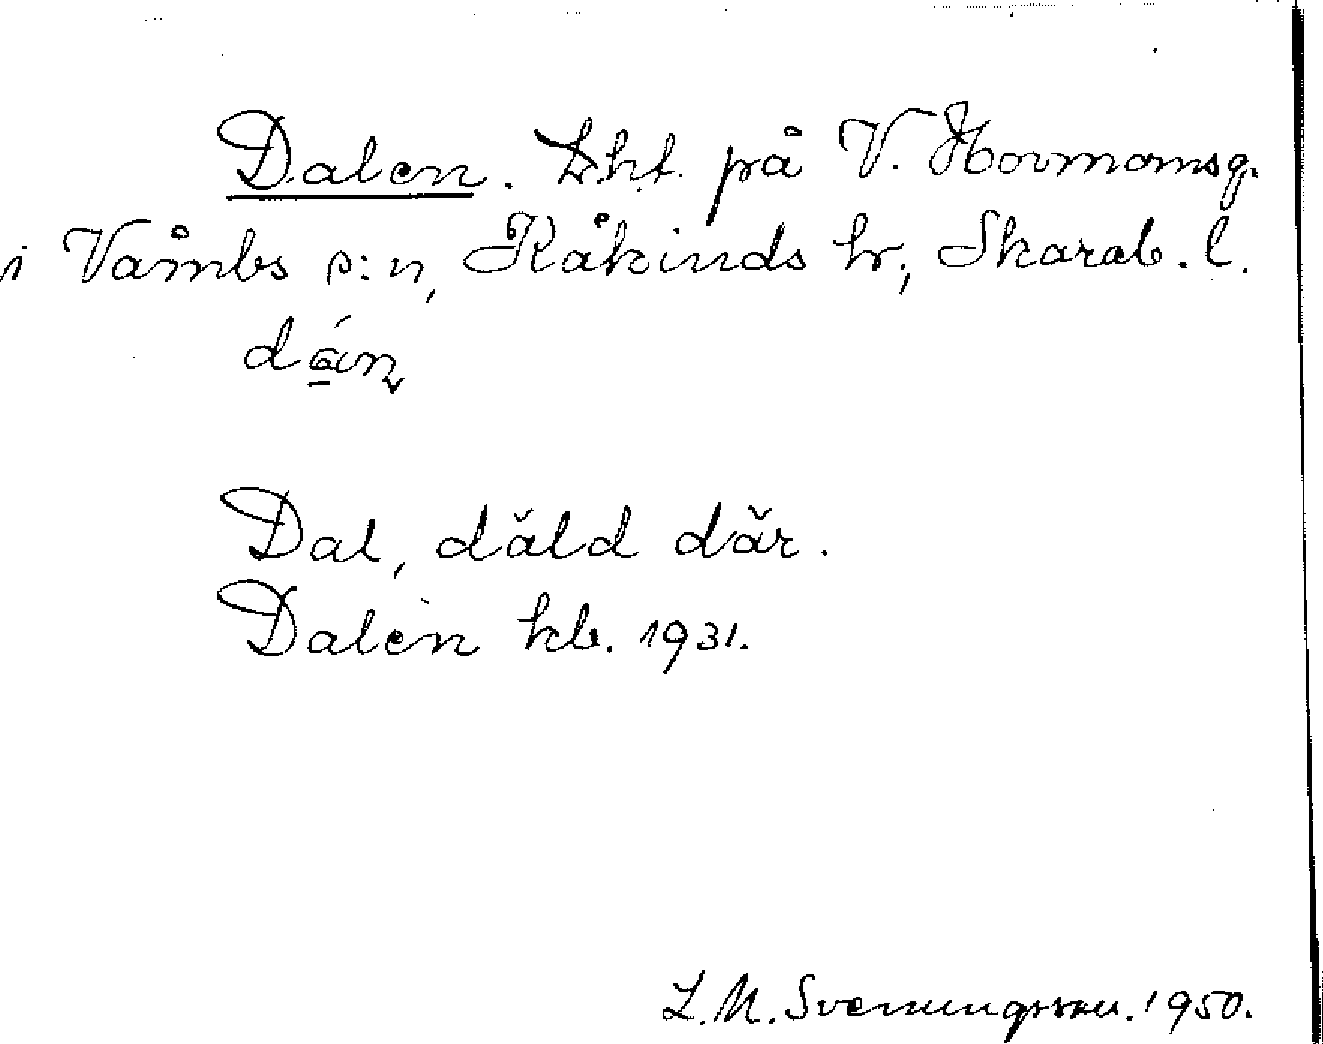 Dalen. Lht. på V. Hovmansg.
i Våmbs s:n, Kåkinds hr, Skarab. l.
Dal, däld där.
Dalen kb. 1931.
L.M. Svenungsson. 1950.